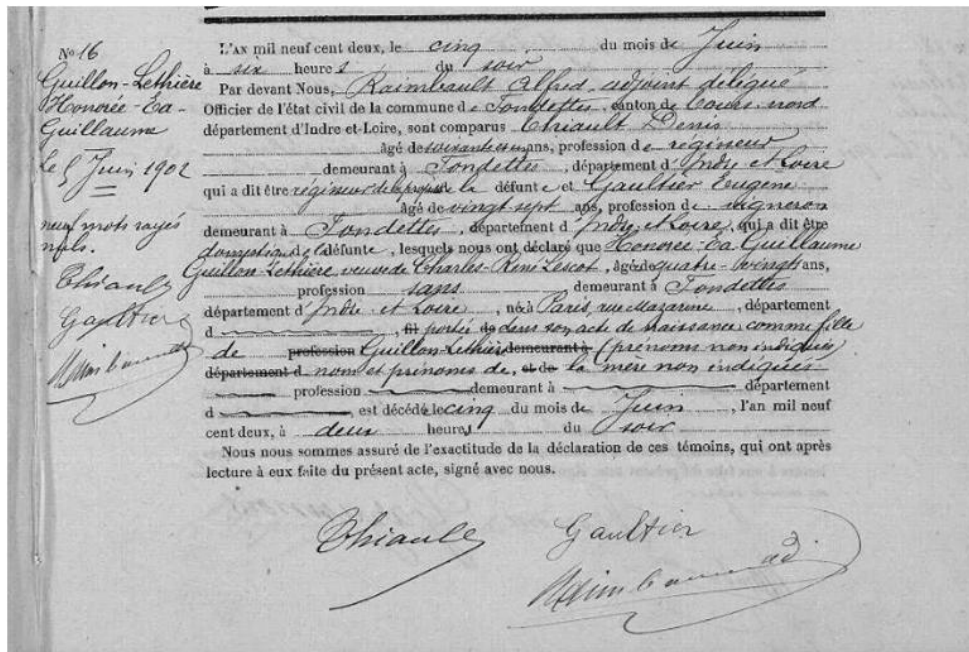 No 16
Guillon-Lethière
Honorée-Ea-
Guillaume
Le 5 Juin 1902
neuf mots rayés
nuls.
Thiault
Gaultier
Raimbault
L'AN mil neuf cent deux, le cinq du mois de Juin
à six heures du soir
Par devant Nous, Raimbault Alfred, adjoint délégué
Officier de l'état civil de la commune de Fondettes, canton de Tours-nord
département d'Indre-et-Loire, sont comparus Thiault Denis
âgé de soixante et un ans, profession de régisseur
demeurant à Fondettes, département d'Indre et Loire
qui a dit être régisseur de la défunte et Gaultier Eugène
âgé de vingt sept ans, profession de vigneron
demeurant à Fondettes, département d'Indre et Loire, qui a dit être
domestique de la défunte, lesquels nous ont déclaré que Honorée-Ea-Guillaume
Guillon-Lethière, veuve de Charles-René Lescot, âgée de quatre-vingt ans,
profession sans demeurant à Fondettes
département d'Indre et Loire, née à Paris, rue Mazarine, département
d fil portée de dans son acte de naissance comme fille
de profession Guillon-Lethière demeurant à (prénoms non indiqués)
département d nom et prénoms de, et de la mère non indiqués
profession demeurant à département
d, est décédée le cinq du mois de Juin, l'an mil neuf
cent deux, à deux heures du soir
Nous nous sommes assuré de l'exactitude de la déclaration de ces témoins, qui ont après
lecture à eux faite du présent acte, signé avec nous.
Thiault
Gaultier
Raimbault adj.